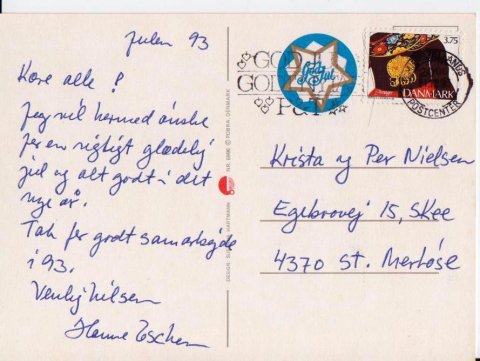 Julen 93
Kære alle!
Jeg vil hermed ønske
jer en rigtigt glædelig
jul og alt godt i det
nye år.
Tak for godt samarbejde
i 93.
Venlig hilsen
Hanne Eschen
NR. 6896 © POBRA, DENMARK
HARTMANN
DESIGN:
GOD
GOD
POST
God Jul
3.75
DANMARK
POSTCENTER
Krista og Per Nielsen
Egebrovej 15, Skee
4370 St. Merløse